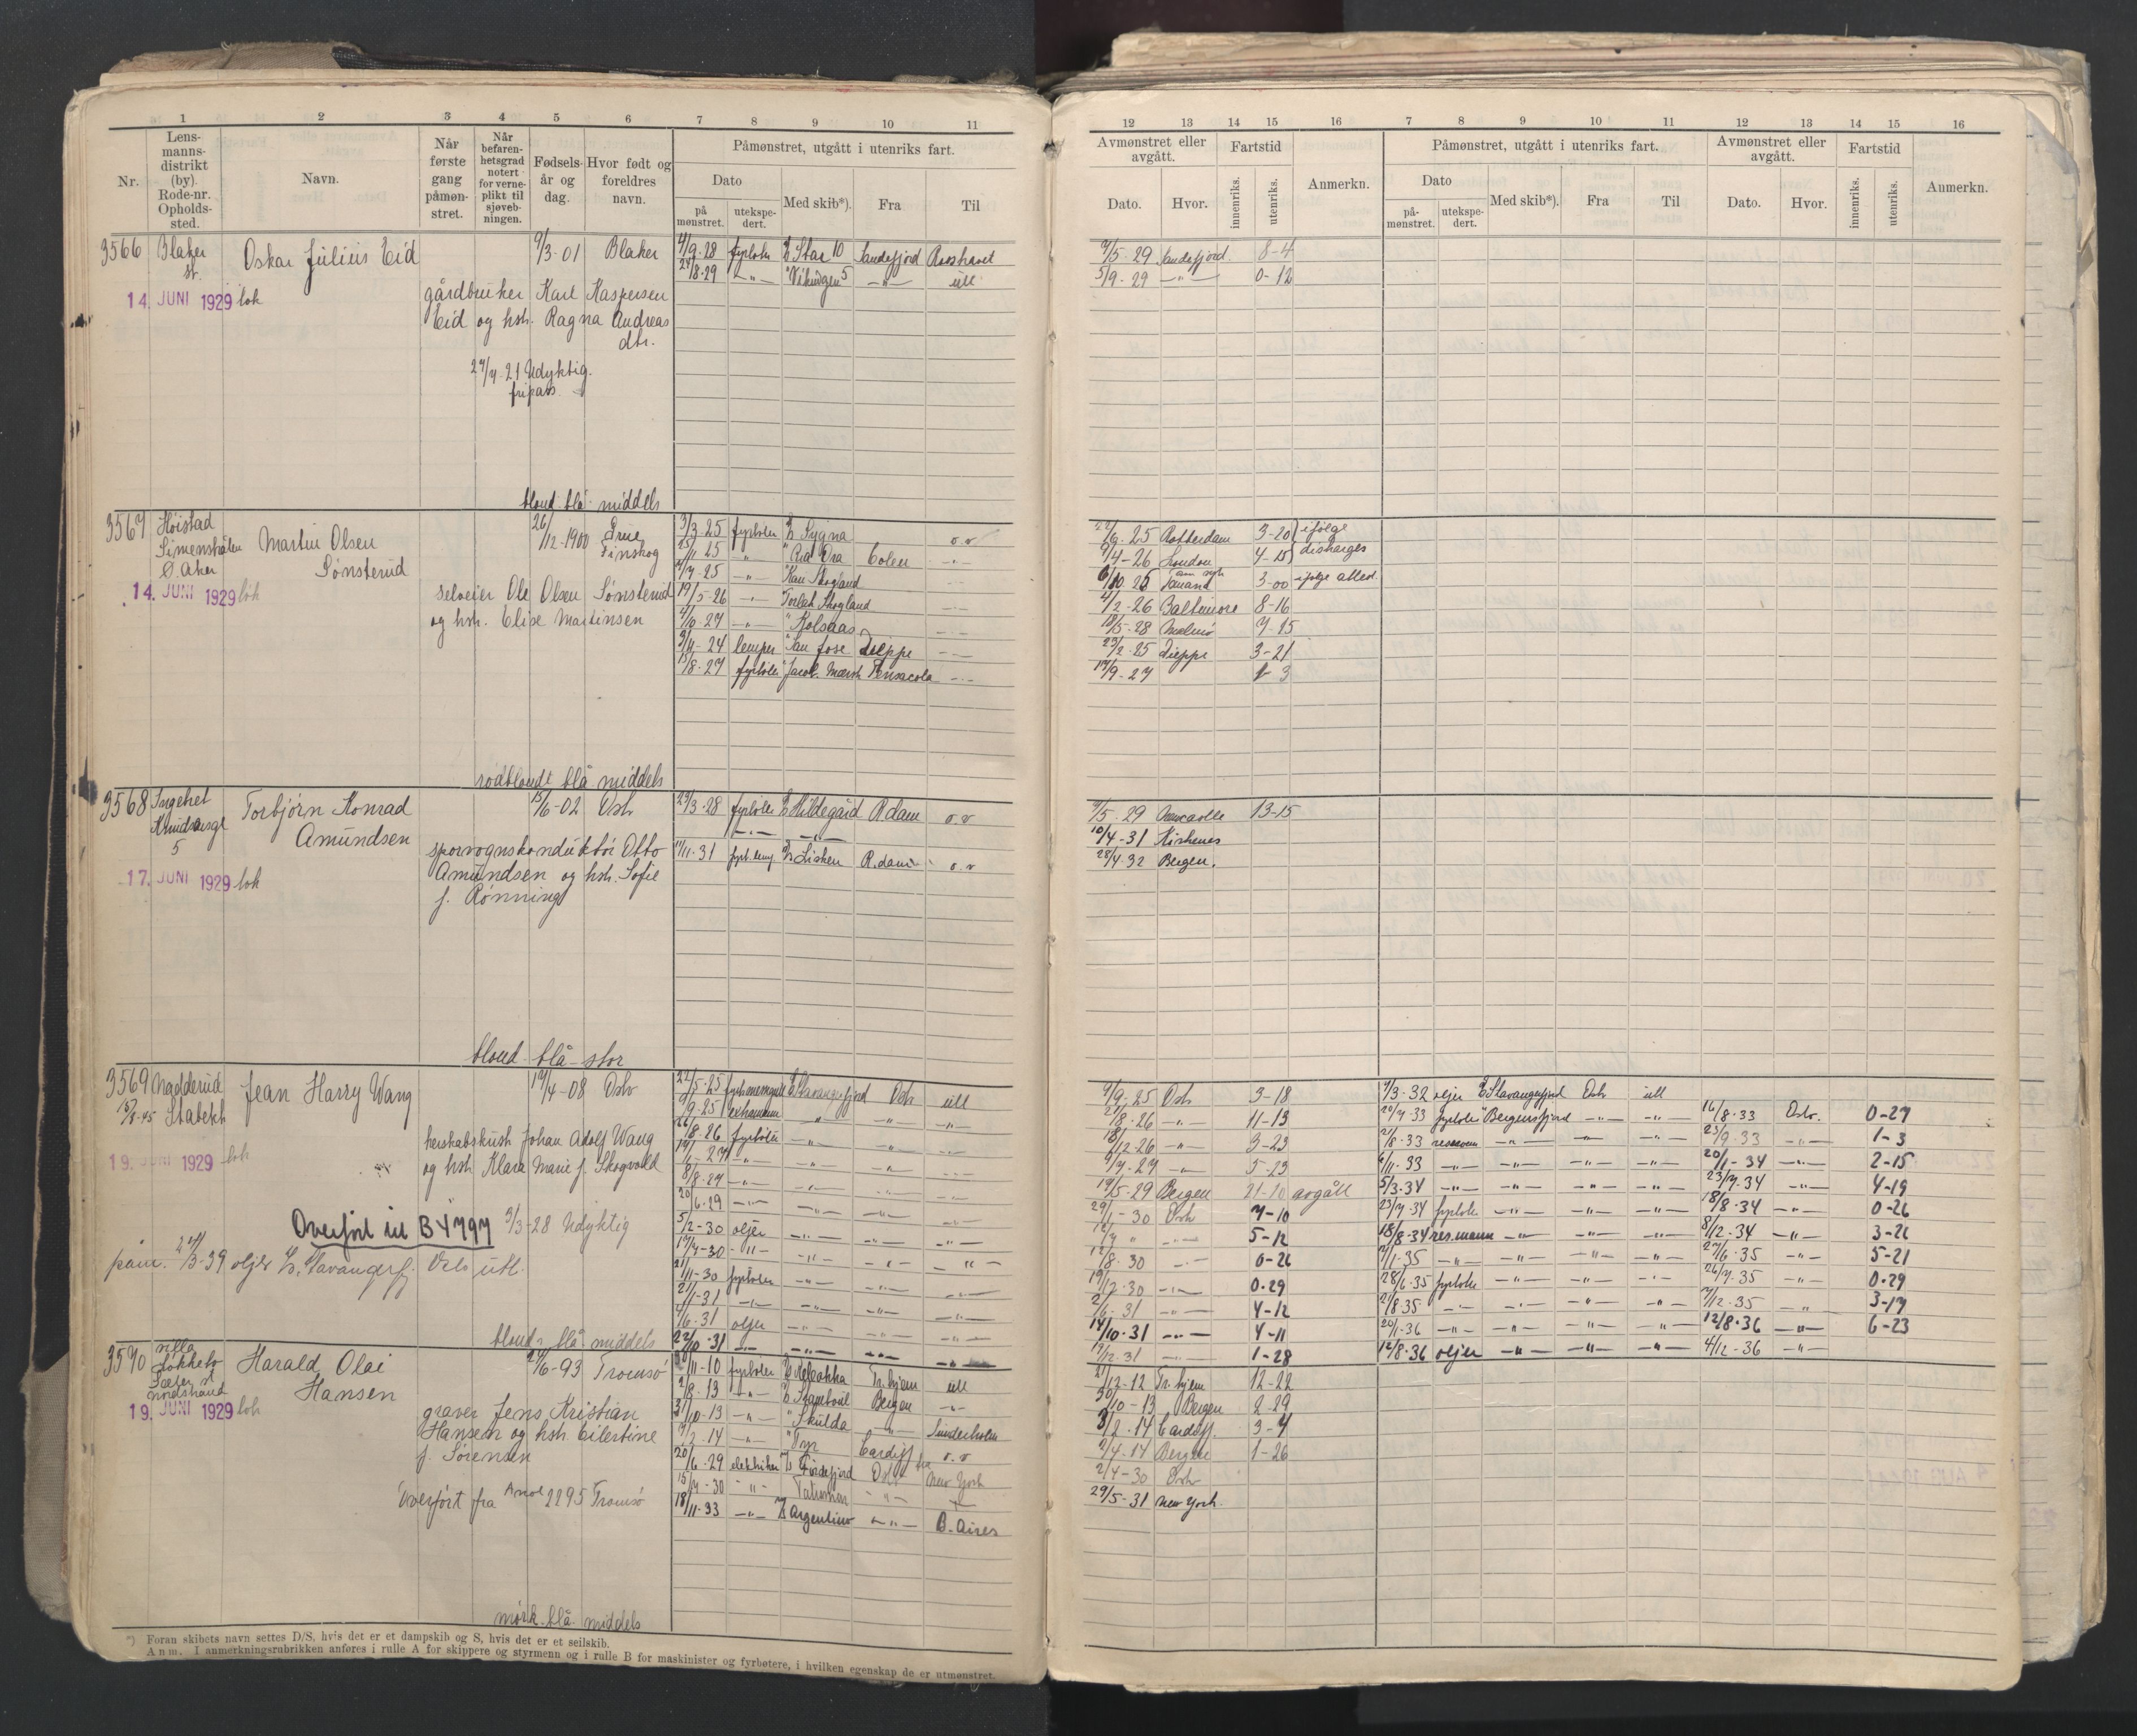 1 2 3 4 5 6 7 8 9 10 11
Nr.
Lens-
manns-
distrikt
(by).
Rode-nr.
Opholds-
sted.
Navn.
Når
første
gang
påmøn-
stret.
Når
befaren-
hetsgrad
notert
for verne-
plikt til
sjøveb-
ningen.
Fødsels-
år og
dag.
Hvor født og
foreldres
navn.
Påmønstret, utgått i utenriks fart.
Dato
på
mønstret.
utekspe-
dert.
Med skib*).
Fra
Til
3566 Blaker st. Oskar Julius Eid 9/3-01 Blaker
14. JUNI 1929 lok
gårdbruker Karl Kaspersen
Eid og hstr. Ragna Andreas
dtr.
27/7-21 Udyktig.
fripass
blond blå middels
4/9-28 fyrbøter Star 10 Sandefjord Rosshavet
24/8-29 -"- "Vikingen 5 -"- utl
3567 Høistad
Ø. Aker
Martin Olsen
Sønsterud
26/12-1900 Grue
Finskog
14. JUNI 1929 lok
selveier Ole Olsen Sønsterud
og hstr. Elise Martinsen
rødblondt blå middels
3/3-25 fyrbøter Sygna o.v
25/11-25 -"- Colen -"-
-"- Kari Skogland
19/5-26 -"- Torleif Skogland -"-
4/10-27 -"- "Kolsaas -"-
3/11-24 lemper "San Jose Dieppe -"-
15/8-27 fyrbøter "Jacob. Mærsk Pensacola -"-
3568 Ingebret
Knudsensgt
5
Torbjørn Konrad
Amundsen
15/6-02 Oslo
17. JUNI 1929 lok
sporvognskonduktør Otto
Amundsen og hstr. Sofie
f. Rønning
blond blå stor
23/3-28 fyrbøter Hildegård Rdam o.v
-"-
17/11-31 fyrb.lemp Lisken R.dam o.v
3569 Nadderud
Stabekk
Jean Harry Wang
19/4-08 Oslo
19. JUNI 1929 lok
herskabskusk Johan Adolf Wang
og hstr Klara Marie f. Skogvold
Overført til B 4797 3/3-28 Udyktig
påm. 24/3-39 oljer Stavangerfj. Oslo utl.
blond blå middels
22/5-25 Stavangerfjord Oslo utl
26/8-26 fyrbøter -"-
8/8-27 -"-
20/6-29 -"-
5/2-30 oljer -"-
17/7-30 -"-
21/11-30 fyrbøter -"-
2/1-31 -"-
4/6-31 oljer -"-
22/10-31 -"-
3570 villa
Nordstrand
Harald Olai
Hansen
24/6-93 Tromsø
19. JUNI 1929 lok
graver Jens Kristian
Hansen og hstr. Eilertine
f. Sørensen
Overført fra Anol 2295 Tromsø
mørk blå middels
30/11-10 fyrbøter Tr.hjem utl
2/8-13 -"- Bergen -"-
31/10-13 -"- "Skulda -"-
17/2-14 -"- "Tyr Cardiff o.v
20/6-29 elektriker Fordefjord Oslo fra New York
15/7-30 -"- -"-
18/11-33 -"- Argentino -"- B. Aires
*) Foran skibets navn settes D/S, hvis det er et dampskib og S, hvis det er et seilskib.
Anm. I anmerkningsrubrikken anføres i rulle A for skippere og styrmenn og i rulle B for maskinister og fyrbøtere, i hvilken egenskap de er utmønstret.
12 13 14 15 16 7 8 9 10 11 12 13 14 15 16
Avmønstret eller
avgått.
Fartstid
Dato.
Hvor.
innenriks.
utenriks.
Anmerkn.
Påmønstret, utgått i utenriks fart.
Dato
på-
mønstret.
utekspe-
dert.
Med skib*).
Fra
Til
Avmønstret eller
avgått.
Fartstid
Dato.
Hvor.
innenriks.
utenriks.
Anmerkn.
9/5-29 Sandefjord 8-4
5/9-29 -"- 0-12
22/6-25 Rotterdam 3-20 ifølge
9/4-26 London 4-15 discharges
6/10 25 3-00 ifølge attest
4/2-26 Baltimore 8-16
18/5-28 Malmö 7-15
23/2-25 Dieppe 3-21
17/9-27 1-3
9/5-29 Newcastle 13-15
10/4-31 Kirkenes
28/4-32 Bergen.
9/9-25 Oslo 3-18
21/8-26 -"- 11-13
18/12-26 -"- 3-23
9/7-27 -"- 5-23
19/5-29 Bergen 21-10 avgått
29/1-30 Oslo 7-10
12/7 " -"- 5-12
12/8-30 -"- 0-26
19/12-30 -"- 0-29
2/6-31 -"- 4-12
14/10-31 -"- 4-11
19/12-31 -"- 1-28
7/3-32 oljer Stavangerfjord Oslo utl
20/7-33 fyrbøter "Bergensfjord -"- -"- 16/8-33 Oslo. 0-27
21/8-33 -"- -"- -"- 23/9-33 -"- 1-3
6/11-33 -"- -"- -"- -"- 20/1-34 -"- 2-15
5/3-34 -"- -"- -"- -"- 23/7-34 -"- 4-19
23/7-34 fyrbøter -"- -"- -"- 18/8-34 -"- 0-26
18/8-34 res.mann -"- -"- -"- 8/12-34 -"- 3-21
7/1-35 -"- -"- -"- -"- 27/6-35 -"- 5-21
28/6-35 fyrbøter -"- -"- -"- 26/7-35 -"- 0-29
21/8-35 -"- -"- -"- -"- 7/12-35 -"- 3-17
20/1-36 -"- -"- -"- -"- 12/8-36 -"- 6-23
12/8-36 oljer -"- -"- -"- 4/12-36 -"-
21/12-12 Tr.hjem 12-22
30/10-13 Bergen 2-29
8/2-14 Cardiff 3-7
2/4-14 Bergen 1-26
2/4-30 Oslo
29/5-31 New York.